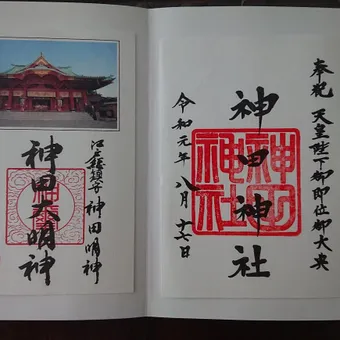 奉祝 天皇陛下御即位御大典
神田神社
神田神社
令和元年八月十七日
江戸総鎮守 神田明神
神田大明神